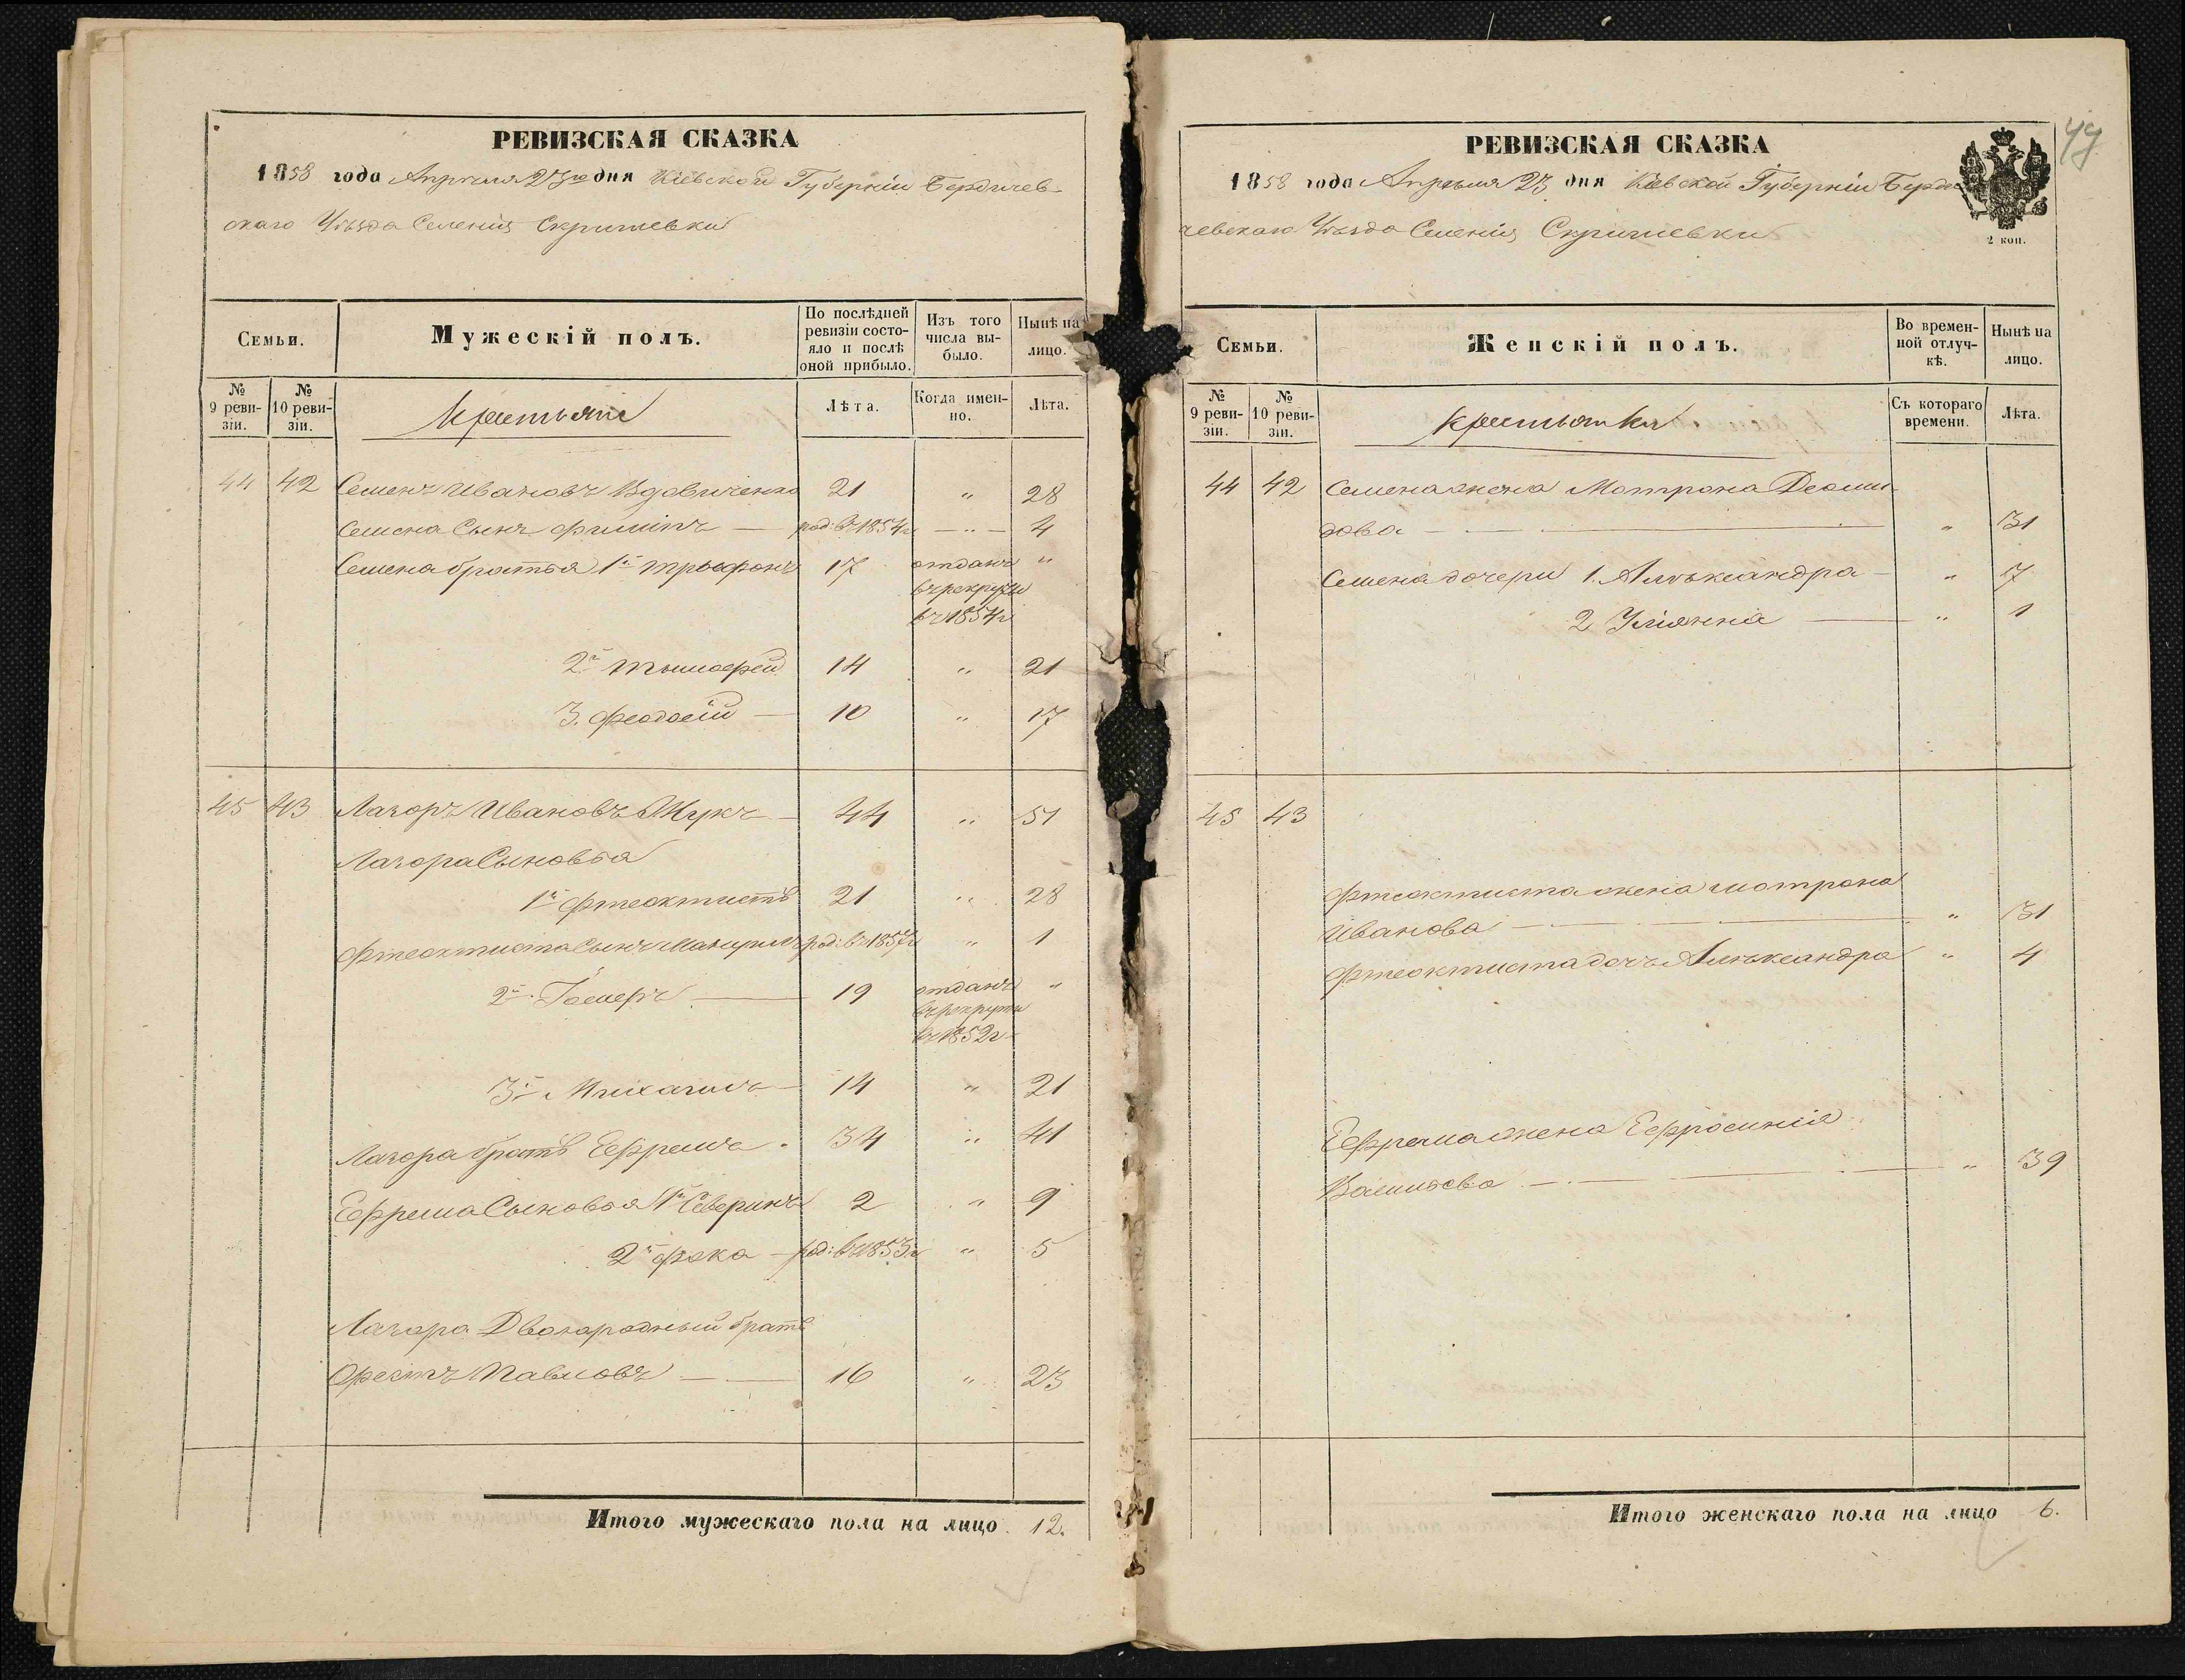 РЕВИЗСКАЯ СКАЗКА
1858 года Апрѣля 23го дня Кіевской Губерніи Бердичев-
скаго Уѣзда Селенія Скригалевки
Семьи.
Мужескій полъ.
По послѣдней ревизіи состояло и послѣ оной прибыло.
Изъ того числа выбыло.
Нынѣ на лицо.
№ 9 ревизіи.
№ 10 ревизіи.
Крестьяне
Лѣта.
Когда именно.
Лѣта.
44 42 Семенъ Ивановъ Вдовиченко 21 " 28
Семена Сынъ Филипъ — род: въ 1854г — " — 4
Семена братья 1й Трыфонъ 17 отданъ "
въ рекруты
въ 1854г
2й Тымофей 14 " 21
3. Феодосій — 10 " 17
45 43 Лазоръ Ивановъ Жукъ — 44 " 51
Лазора Сыновья
1й Фтеоктистъ 21 " 28
Фтеоктиста Сынъ Мануилъ род: въ 1857г " 1
2й — 19 отданъ "
въ рекруты
въ 1852г
3й Михаилъ — 14 " 21
Лазора братъ Ефремъ 34 " 41
Ефрема Сыновья 1й Северинъ 2 " 9
2й Фока — род: въ 1853г " 5
Лазора Двоюродный братъ
Орестъ Павловъ — 16 " 23
Итого мужескаго пола на лицо 12.
49
РЕВИЗСКАЯ СКАЗКА
1858 года Апрѣля 23 дня Кіевской Губерніи Берди
чевскаго Уѣзда Селенія Скригалевки
2 коп.
Семьи.
Женскій полъ.
Во временной отлучкѣ.
Нынѣ на лицо.
№ 9 ревизіи.
№ 10 ревизіи.
Крестьянки
Съ котораго времени.
Лѣта.
44 42 Семена жена Мотрона Деоми-
дова — " 31
Семена дочери 1. Алѣксандра — " 7
2 Уліянна — " 1
45 43
Фтеоктиста жена Мотрона
Иванова — " 31
Фтеоктиста дочь Алѣксандра " 4
Ефрема жена Ефросинія
— " 39
Итого женскаго пола на лицо 6.